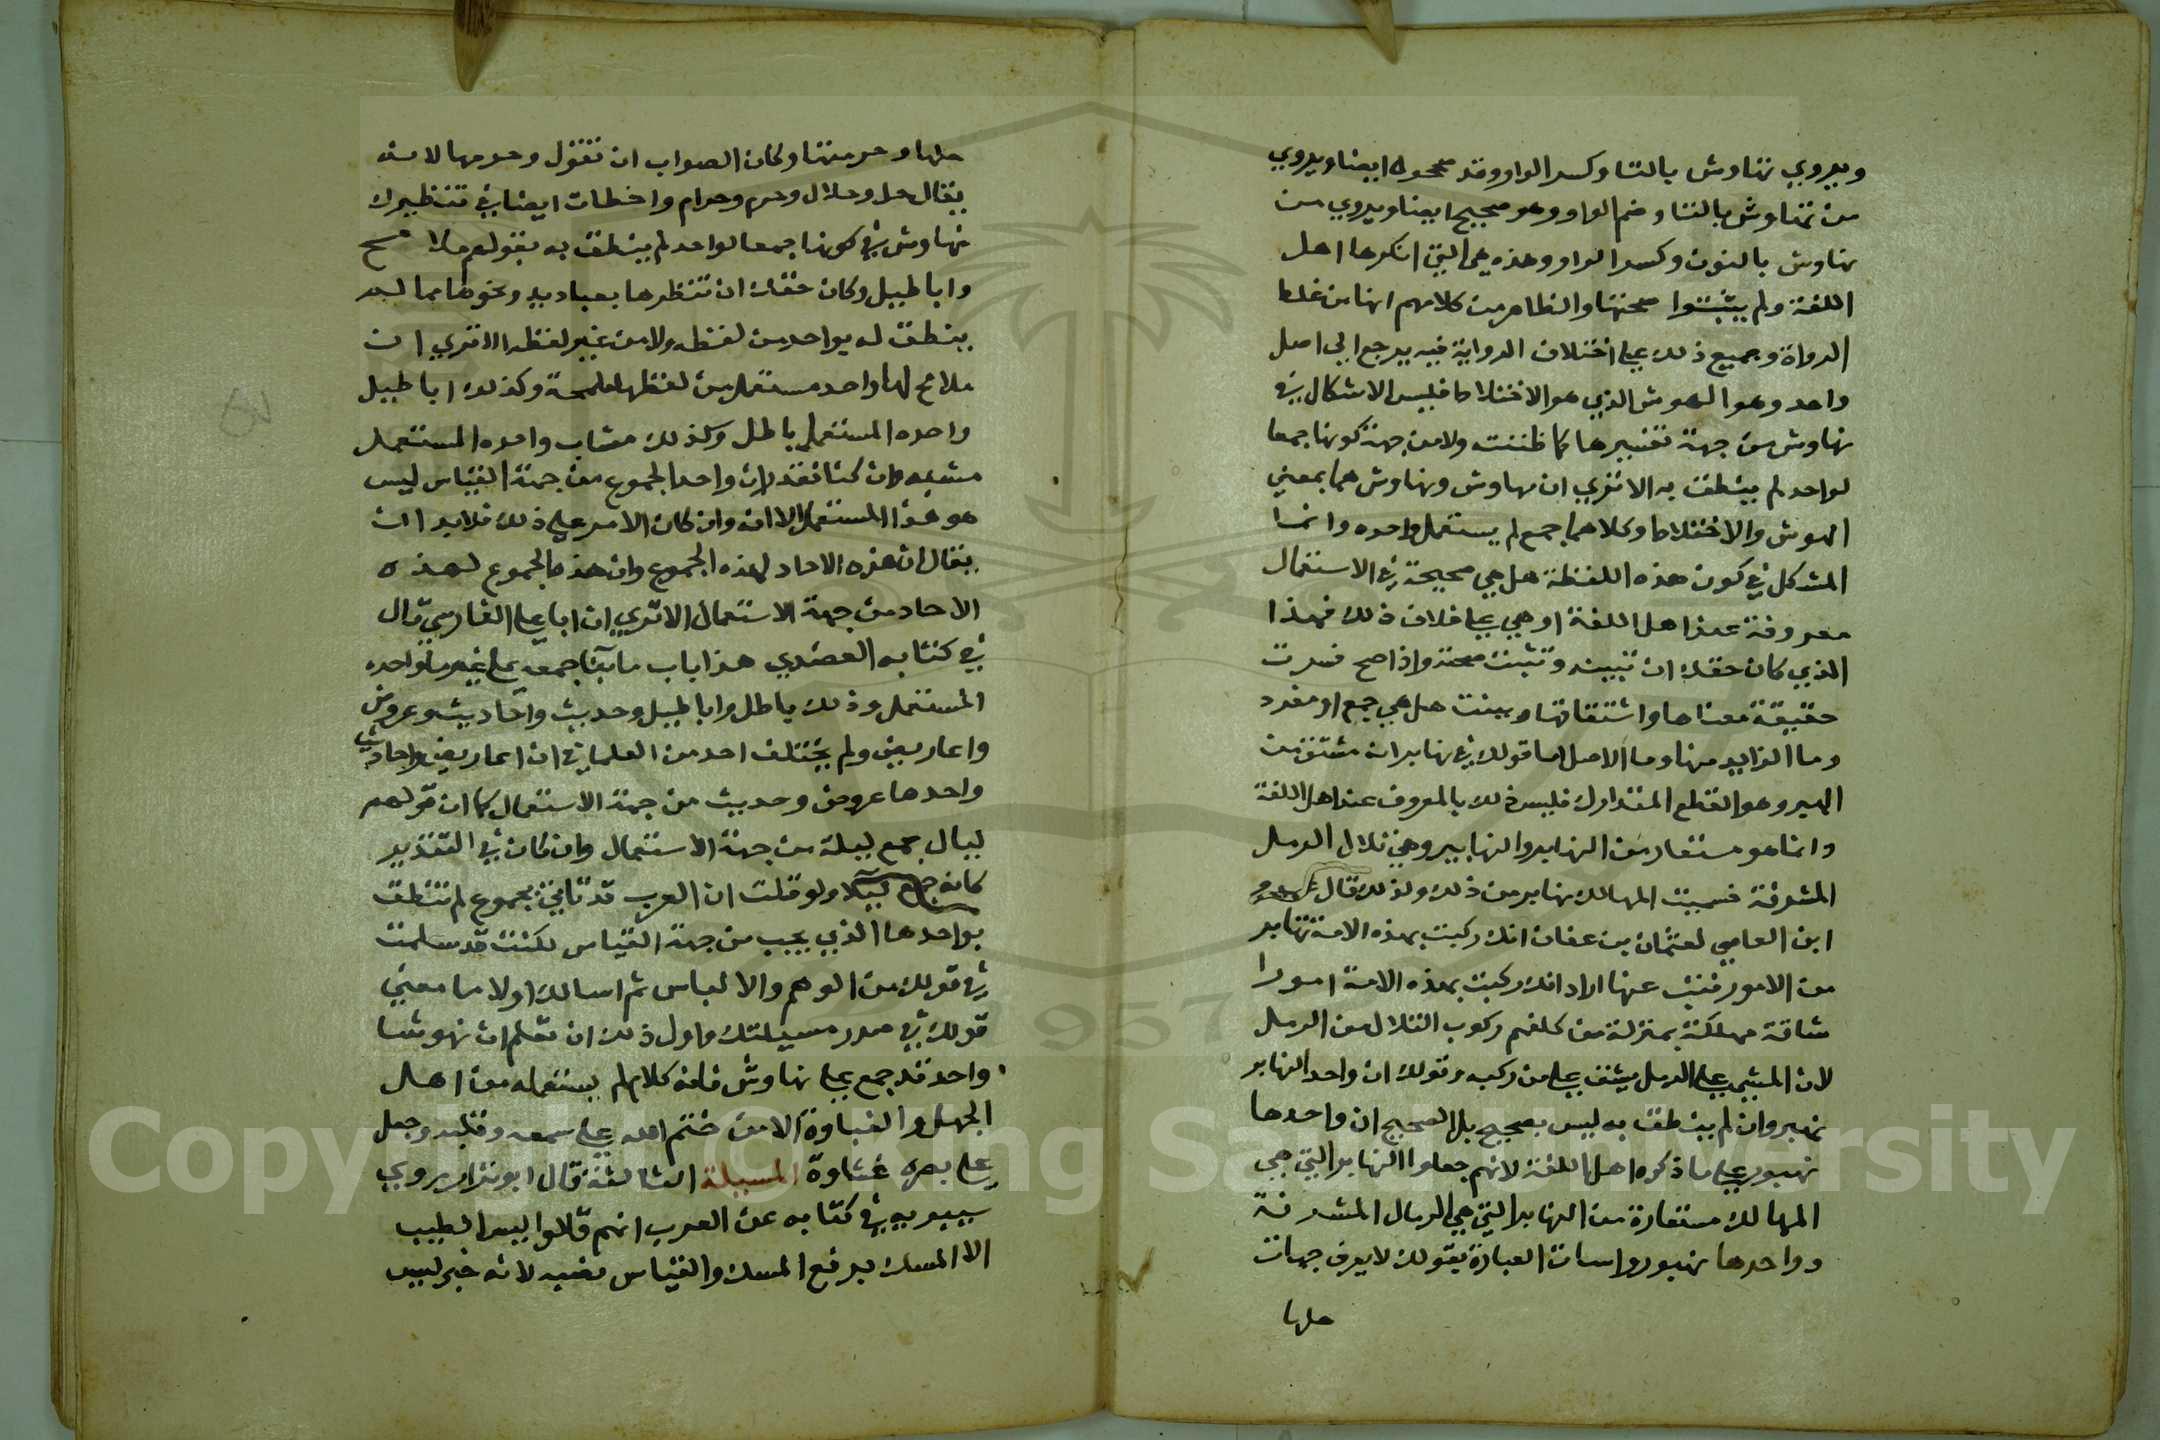 ويروي تهاوش بالتا وكسر الواو وقد صححوه ايضا ويروي
من تهاوش بالتا وضم الواو وهو صحيح ايضا ويروي من
نهاوش بالنون وكسر الواو وهذه هي التي انكرها اهل
اللغة ولم يثبتوا صحتها والظاهر من كلامهم انها من غلط
الرواة وجميع ذلك علي اختلاف الرواية فيه يرجع الي اصل
واحد وهو الهوش الذي هو الاختلاط فليس الاشكال في
نهاوش من جهة تفسيرها كما ظننت ولا من جهة كونها جمعا
لواحد لم ينطق به الا تري ان مهاوش ونهاوش هما بمعني
الهوش والاختلاط وكلاهما جمع لم يستعمل واحده وانما
المشكل في كون هذه اللفظة هل هي صحيحة في الاستعمال
معروفة عند اهل اللغة او هي علي خلاف ذلك فهذا
الذي كان حقك ان تبينه وتثبت صحته واذا صح فسرت
حقيقة معناها واشتقاقها وبينت هل هي جمع او مفرد
وما الزايد منها وما الاصل اما قولك في نهابر انه مشتق من
الهبر وهو القطع المتدارك فليس ذلك بالمعروف عند اهل اللغة
وانما هو مستعار من النهابر والنهابير وهي تلال الرمل
المشرفة فسميت المهالك نهابر من ذلك ولذلك قال عمرو
ابن العاصي لعثمان بن عفان انك ركبت بهذه الامة نهابر
من الامور فتب عنها اراد انك ركبت بهذه الامة امورا
شاقة مهلكة بمنزلة من كلفهم ركوب التلال من الرمل
لان المشي علي الرمل يشق علي من ركبه وقولك ان واحد النهابر
نهبر وان لم ينطق به ليس بصحيح بل الصحيح ان واحدها
نهبور علي ما ذكره اهل اللغة لانهم جعلوا النهابر التي هي
المهالك مستعارة من النهابر التي هي الرمال المشرفة
وواحدها نهبور واسات العبارة بقولك لا يعرف جهات
حلها
حلها وحرمتها وكان الصواب ان تقول وحرمها لانه
يقال حل وحلال وحرم وحرام واخطات ايضا في تنظيرك
نهاوش في كونها جمعا لواحد لم ينطق به بقولهم ملامح
واباطيل وكان حقك ان تنظرها بعباديد ونحوها مما لم
ينطق له بواحد من لفظه ولا من غير لفظه الا تري ان
ملامح لها واحد مستعمل من لفظها لمحة وكذلك اباطيل
واحده المستعمل باطل وكذلك مشابه واحده المستعمل
مشبه وان كنا نقدر ان واحد الجموع من جهة القياس ليس
هو هذا المستعمل الا ان وان كان الامر علي ذلك فلا بد ان
يقال ان هذه الاحاد لهذه الجموع وان هذه الجموع لهذه
الاحاد من جهة الاستعمال الا تري ان ابا علي الفارسي قال
في كتابه العضدي هذا باب ما بنا جمعه علي غير بنا واحده
المستعمل وذلك باطل واباطيل وحديث واحاديث وعروض
واعاريض ولم يختلف احد من العلما في ان اعاريض واحاديث
واحدها عروض وحديث من جهة الاستعمال كما ان قولهم
ليال جمع ليلة من جهة الاستعمال وان كان في التقدير
كانه جمع ليلا ولو قلت ان العرب قد تاتي بجموع لم تنطق
بواحدها الذي يجب من جهة القياس لكنت قد سلمت
في قولك من الوهم والالباس ثم اسالك اولا ما معني
قولك في صدر مسيلتك واول ذلك ان تعلم ان نهوشا
واحد قد جمع علي نهاوش فانه كلام لم يستعمله من اهل
الجهل والغباوة الا من ختم الله علي سمعه وقلبه وجعل
علي بصره غشاوة المسيلة الثالثة قال ابو نزار يروي
سيبويه في كتابه عن العرب انهم قالوا ليس الطيب
الا المسك برفع المسك والقياس نصبه لانه خبر ليس